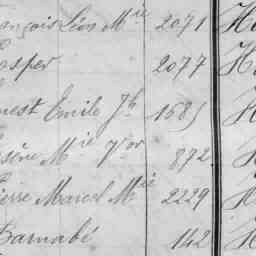 François Léon Mie 2071 H
osper 2077 H
nest Emile Jh 1585 H
Mie Vor 872 H
ierre Marcel Mie 2229 H
Barnabé 142 H